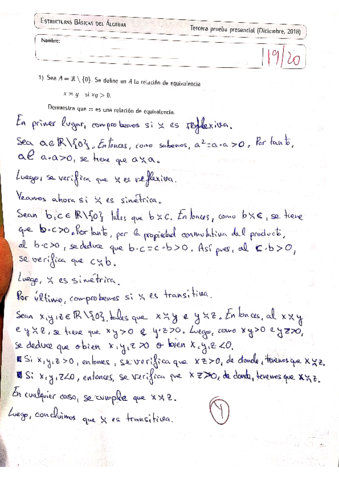 ESTRUCTURAS BÁSICAS DEL ÁLGEBRA
Tercera prueba presencial (Diciembre, 2018)
Nombre:
19/20
1) Sea A = ℝ \ {0}. Se define en A la relación de equivalencia
x ≍ y si xy > 0.
Demuestra que ≍ es una relación de equivalencia.
En primer lugar, comprobemos si ≍ es reflexiva.
Sea a∈ℝ\{0}. Entonces, como sabemos, a²=a·a>0. Por tanto,
al a·a>0, se tiene que a≍a.
Luego, se verifica que ≍ es reflexiva.
Veamos ahora si ≍ es simétrica.
Sean b,c∈ℝ\{0} tales que b≍c. Entonces, como b≍c, se tiene
que b·c>0. Por tanto, por la propiedad conmutativa del producto,
al b·c>0, se deduce que b·c=c·b>0. Así pues, al c·b>0,
se verifica que c≍b.
Luego, ≍ es simétrica.
Por último, comprobemos si ≍ es transitiva.
Sean x,y,z∈ℝ\{0}, tales que x≍y e y≍z. Entonces, al x≍y
e y≍z, se tiene que xy>0 e y·z>0. Luego, como xy>0 e yz>0,
se deduce que o bien x,y,z>0 o bien x,y,z<0.
▪ Si x,y,z>0, entonces, se verifica que xz>0, de donde, tenemos que x≍z.
▪ Si x,y,z<0, entonces, se verifica que xz>0, de donde, tenemos que x≍z.
En cualquier caso, se cumple que x≍z.
Luego, concluimos que ≍ es transitiva.